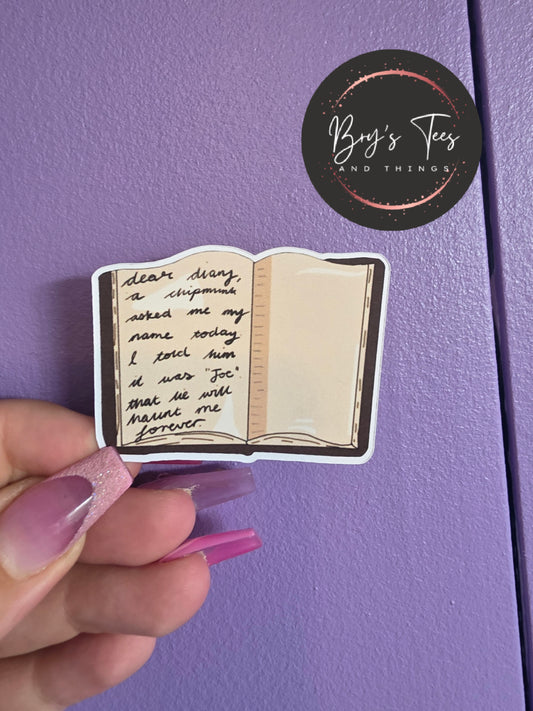 Bry's Tees
AND THINGS
dear diary,
a chipmunk
asked me my
name today
I told him
it was "Joe".
that lie will
haunt me
forever.